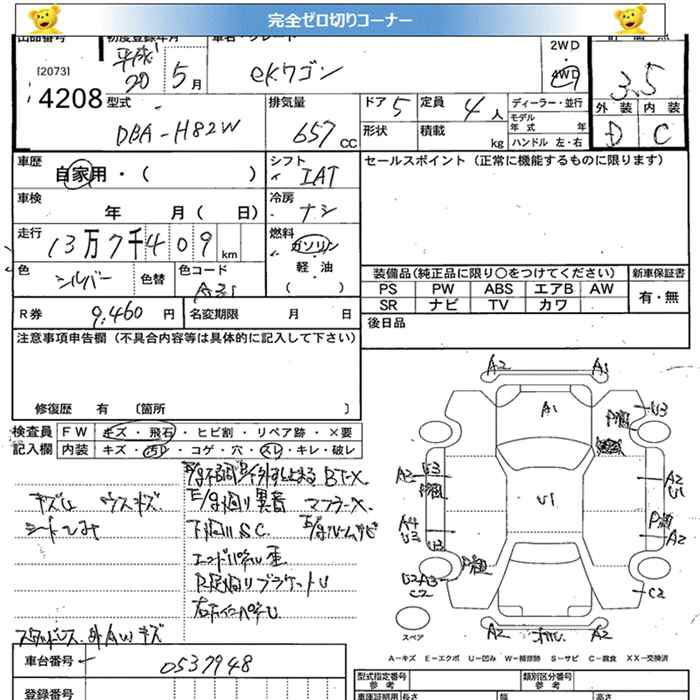 完全ゼロ切りコーナー
出品番号
初度登録年月
平成20 5月
eKワゴン
2WD
4WD
3.5
[2073]
4208
型式
DBA-H82W
排気量
657 CC
ドア 5
定員 4人
ディーラー・並行
モデル年式 年
ハンドル 左・右
形状
積載 kg
外装 内装
D C
車歴 自家用・( )
シフト
IAT
セールスポイント(正常に機能するものに限ります)
車検 年 月( 日)
冷房
ナシ
走行 13万7千409km
燃料
ガソリン
軽・油
( )
色 シルバー
色替
色コード
A31
装備品(純正品に限り○をつけてください)
新車保証書
PS PW ABS エアB AW
有・無
SR ナビ TV カワ
R券 9,460円
名変期限 月 日
後日品
注意事項申告欄(不具合内容等は具体的に記入して下さい)
修復歴 有 〔箇所 〕
検査員記入欄
FW キズ・飛石・ヒビ割・リペア跡・×要
内装 キズ・汚レ・コゲ・穴・スレ・キレ・破レ
キズU ウスキズ
シートヒみ
E/g廻り異音 マフラーX
下廻りS.C.
エンドパネU 歪
スタッドレス 外AWキズ
A2 A1
A1
U3
U1
A2
U3
A2
U1
A4
U3
U3
A2
U2A3
C2
C2
A2
A2
スペア
A-キズ E-エクボ U-凹み W-補修跡 S-サビ C-腐食 XX-交換済
車台番号
0537948
登録番号
型式指定番号
参考
類別区分番号
参考
車庫証明用 長さ 幅 高さ